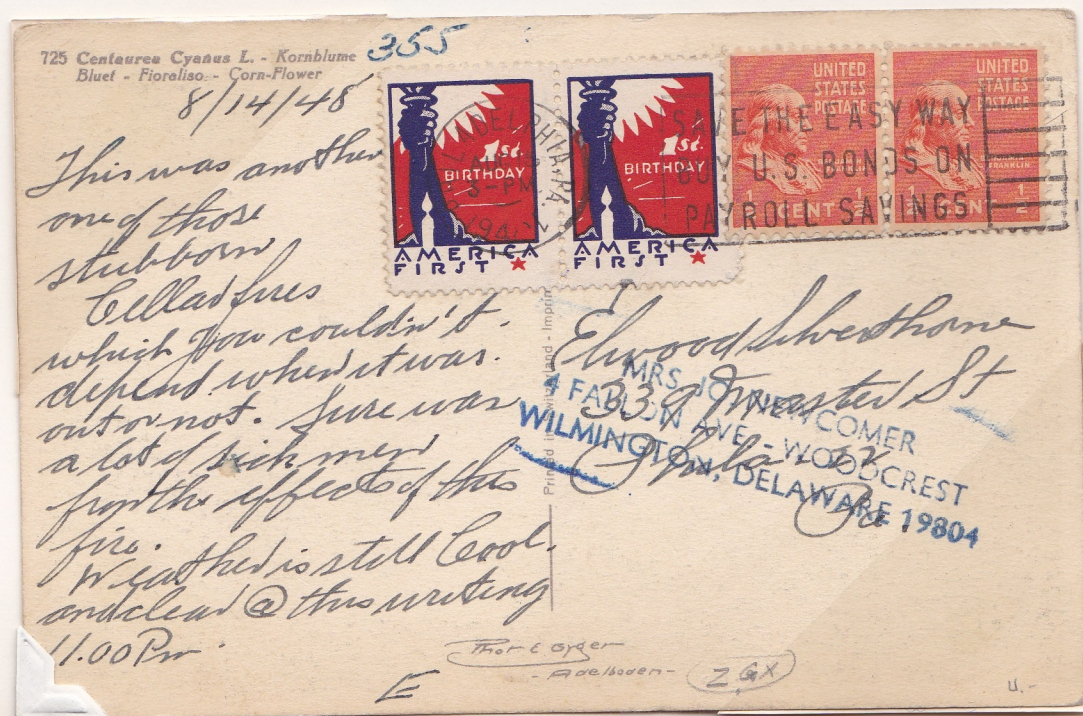 725 Centaurea Cyanus L. - Kornblume
Bluet - Fioraliso - Corn-Flower
355
8/14/48
This was another
one of those
stubborn
Cellar fires
which you couldn't
depend when it was
out or not. Sure was
a lot of sick men
from the effects of this
fire.
Weather is still Cool
and clear @ this writing
11.00 Pm.
E
1st.
BIRTHDAY
AMERICA
FIRST
1st.
BIRTHDAY
AMERICA
FIRST
UNITED
STATES
POSTAGE
FRANKLIN
1/2 CENT 1/2
UNITED
STATES
POSTAGE
FRANKLIN
1/2 CENT 1/2
PHILADELPHIA, PA.
3-PM
SAVE THE EASY WAY
BUY U.S. BONDS ON
PAYROLL SAVINGS
Printed in Switzerland - Imprimé
Elwood Silverthorne
339 Master St
Phila - 22
Pa.
MRS. JO NEWCOMER
4 FALLON AVE - WOODCREST
WILMINGTON, DELAWARE 19804
Thor E Gyger
- Adelboden -
ZGX
u.-